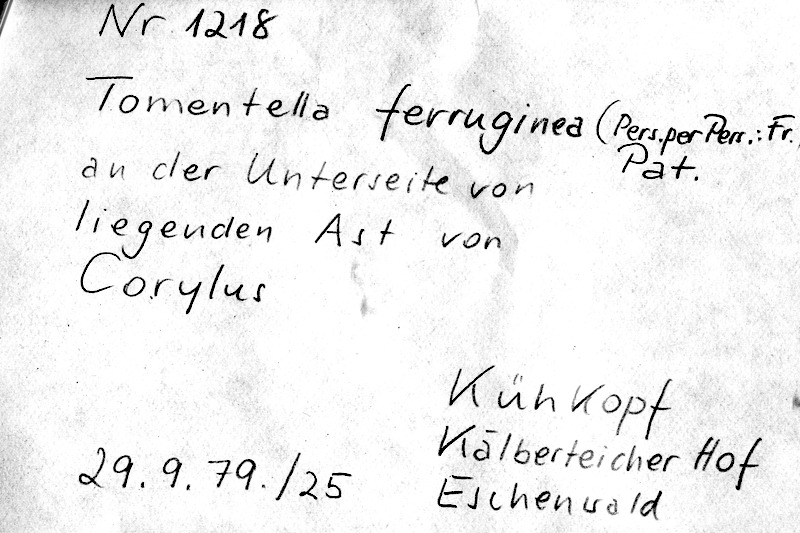 Nr 1218
Tomentella ferruginea (Pers. per Pers.: Fr.)
Pat.
an der Unterseite von
liegenden Ast von
Corylus
Kühkopf
Kälberteicher Hof
Eschenwald
29.9.79./25